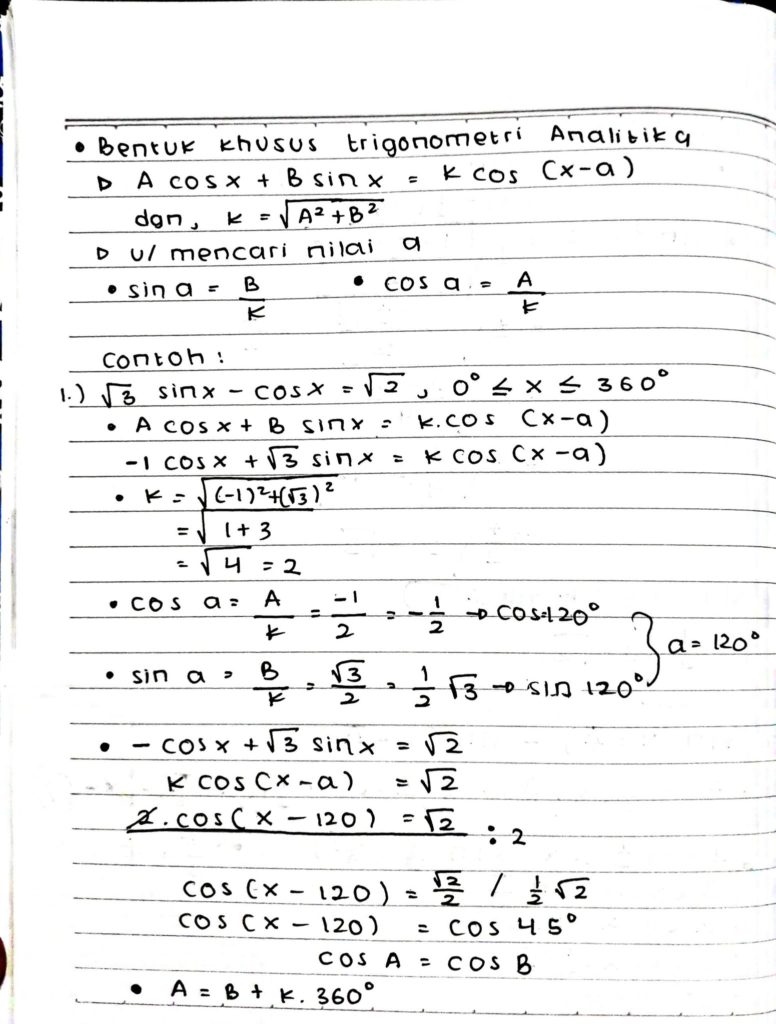 • Bentuk khusus trigonometri Analitika
▷ A cos x + B sin x = k cos (x-a)
dgn, k = √A² + B²
▷ u/ mencari nilai a
• sin a = B/k • cos a = A/k
Contoh :
1.) √3 sin x - cos x = √2 , 0° ≤ x ≤ 360°
• A cos x + B sin x = k. cos (x-a)
-1 cos x + √3 sin x = k cos (x-a)
• k = √(-1)²+(√3)²
= √1+3
= √4 = 2
• cos a = A/k = -1/2 = -1/2 → cos 120°
• sin a = B/k = √3/2 = 1/2 √3 → sin 120° } a = 120°
• - cos x + √3 sin x = √2
k cos (x-a) = √2
2. cos (x - 120) = √2 : 2
cos (x - 120) = √2/2 / 1/2 √2
cos (x - 120) = cos 45°
cos A = cos B
• A = B + k. 360°